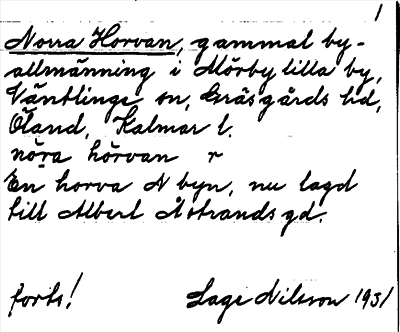 1
Norra Horvan, gammal by-
allmänning i Mörbylilla by,
Ventlinge sn, Gräsgårds hd,
Öland, Kalmar l.
nöra hörvan r
En horva N byn, nu lagd
till Albert Åstrands gd.
forts! Lage Nilsson 1931